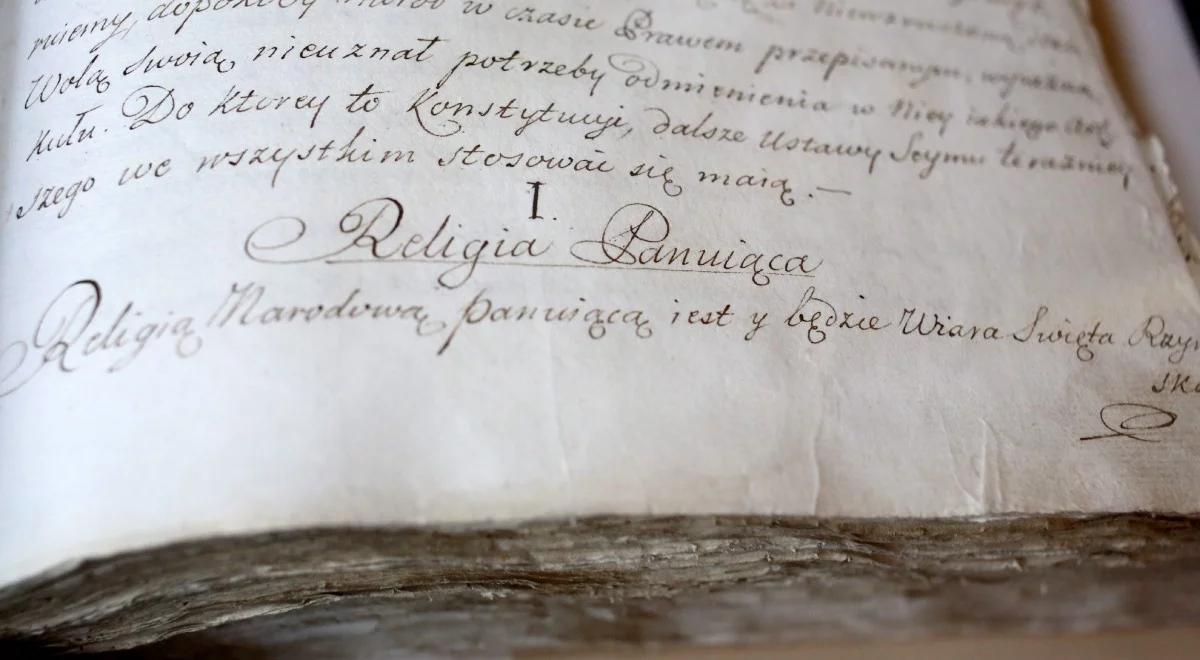 niemy, dopokąby Naród w czasie Prawem przepisanym, wyraźną
Wolą swoią nieuznał potrzeby odmienienia w Niey iakiego Arty
kułu. Do ktorey to Konstytucyi, dalsze Ustawy Seymu teraźniey
szego we wszystkim stosować się maią.—
I.
Religia Panuiąca
Religią Narodową panuiącą iest y będzie Wiara Swięta Rzym
ska